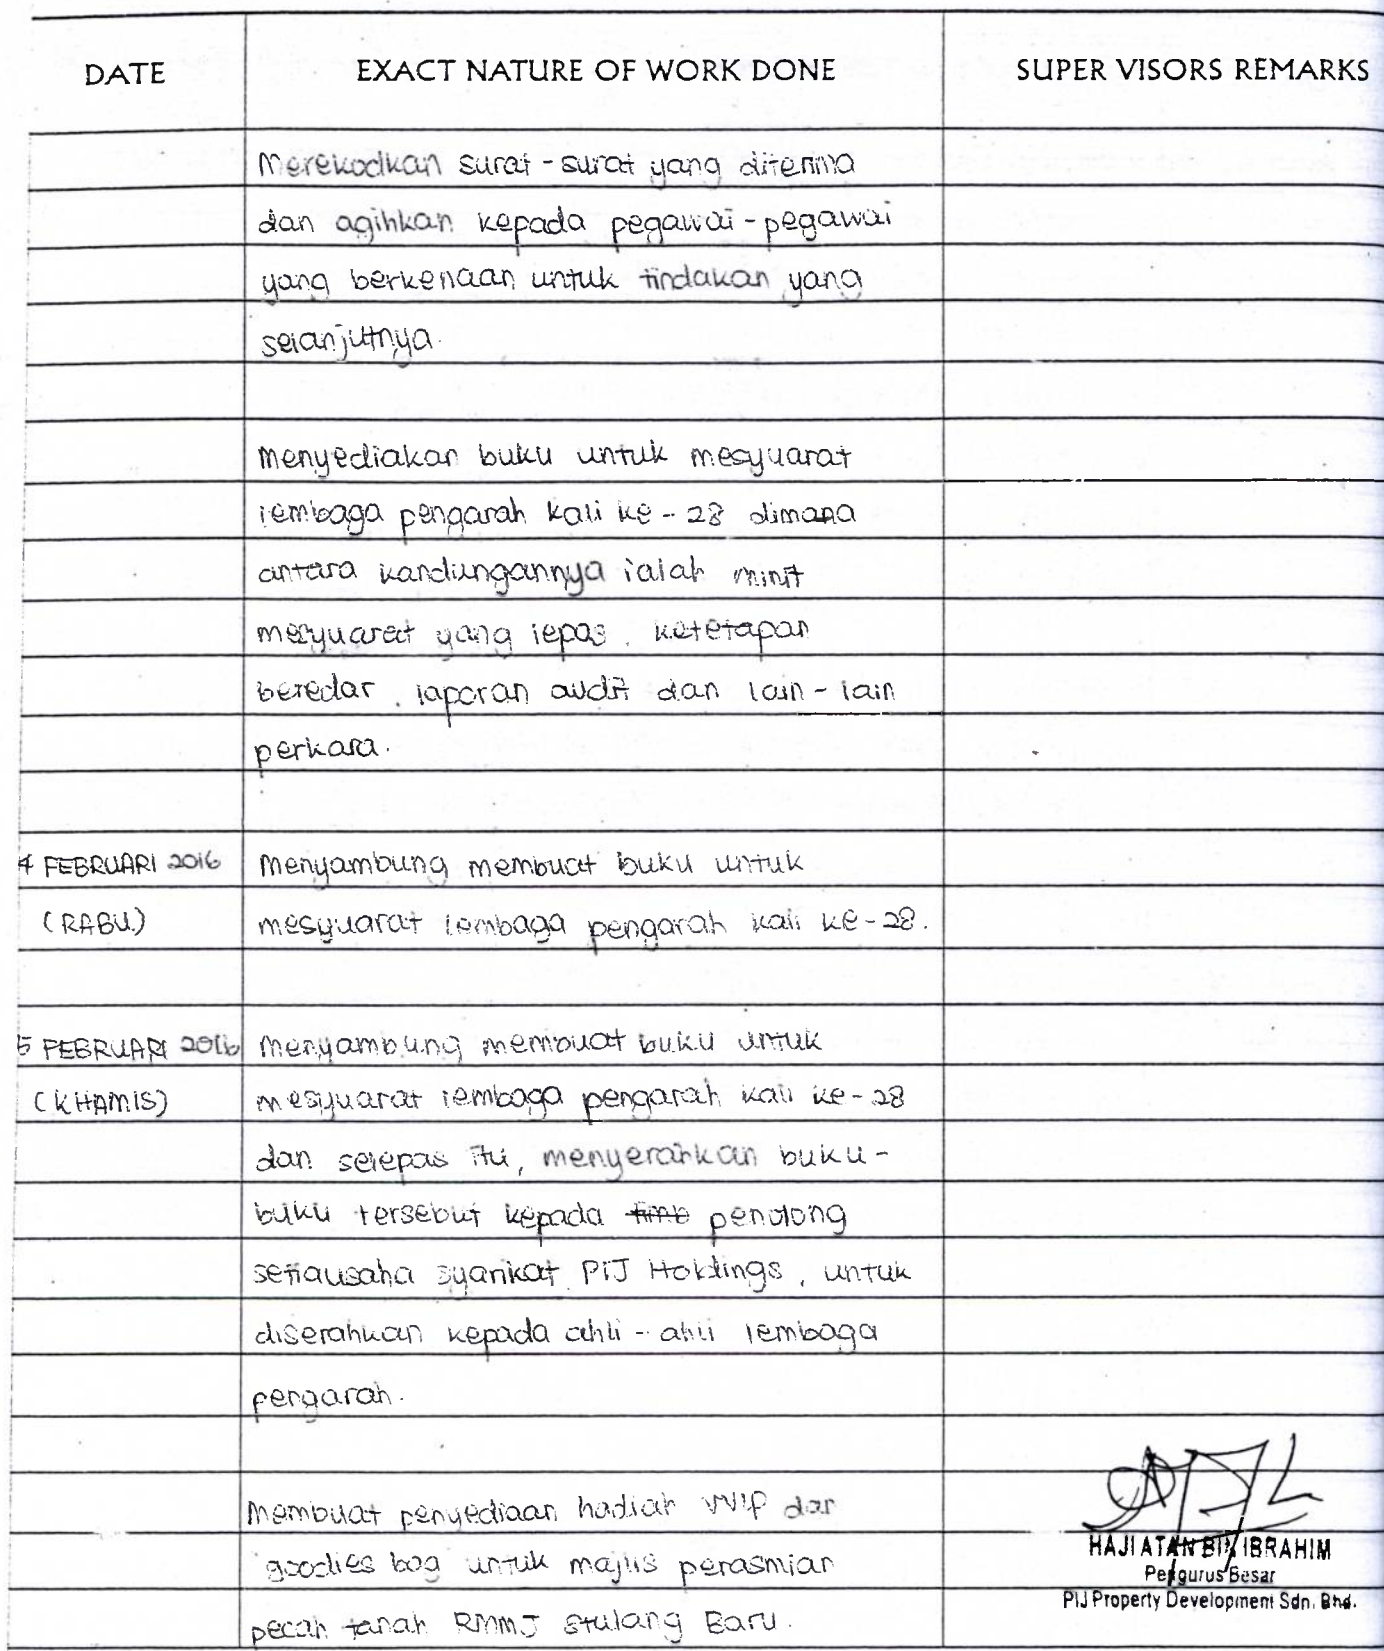 DATE EXACT NATURE OF WORK DONE SUPER VISORS REMARKS
Merekodkan surat-surat yang diterima
dan agihkan kepada pegawai-pegawai
yang berkenaan untuk tindakan yang
selanjutnya.
Menyediakan buku untuk mesyuarat
lembaga pengarah kali ke-28 dimana
antara kandungannya ialah minit
mesyuarat yang lepas, ketetapan
beredar, laporan audit dan lain-lain
perkara.
4 FEBRUARI 2016 Menyambung membuat buku untuk
(RABU) mesyuarat lembaga pengarah kali ke-28.
5 FEBRUARI 2016 Menyambung membuat buku untuk
(KHAMIS) mesyuarat lembaga pengarah kali ke-28
dan selepas itu, menyerahkan buku-
buku tersebut kepada penolong
setiausaha syarikat PIJ Holdings, untuk
diserahkan kepada ahli-ahli lembaga
pengarah.
Membuat penyediaan hadiah VVIP dan
goodies bag untuk majlis perasmian
pecah tanah RMMJ Stulang Baru.
HAJI ATAN BIN IBRAHIM
Pengurus Besar
PIJ Property Development Sdn. Bhd.